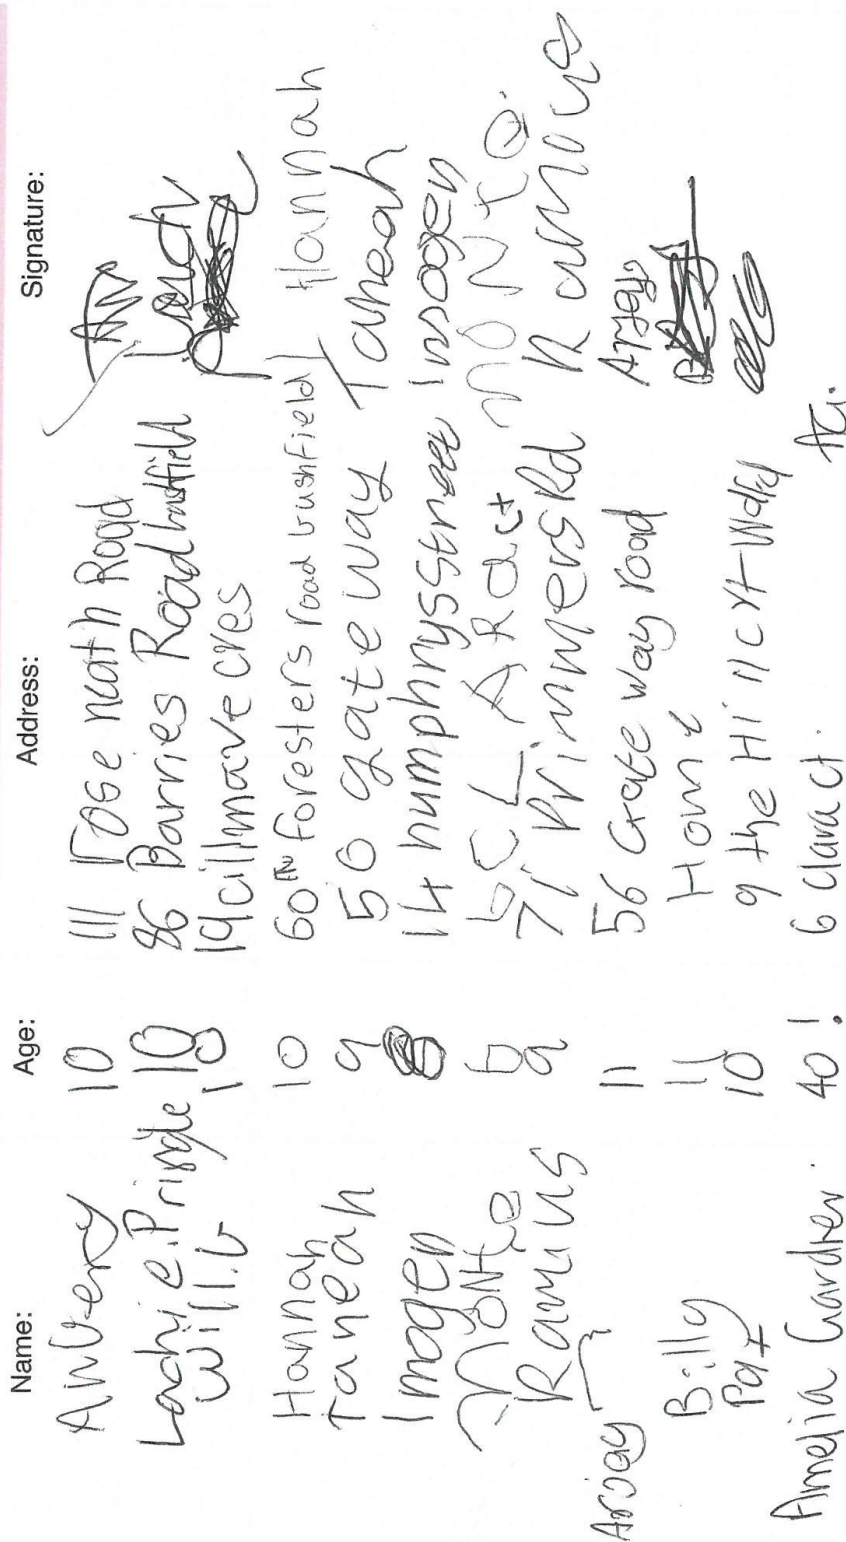 Name: Age: Address: Signature:
10 111 Rose neath Road
Lachie.Pringle 10 86 Barries Road bushfield Lach
Will.G 10 19 cres
Hannah 10 60 foresters road bushfield Hannah
Taneah 9 56 gate way Taneah
Imogen 14 humphrys street Imogen
MONte 6 6 CLARA ct MONTe
Ramius 9 71 Primmers Rd Ramius
11 56 Gate way road
Billy 11 Home
Pat 10 9 the Hill crt
Amelia Gardner. 40! 6 Clara ct. AG.